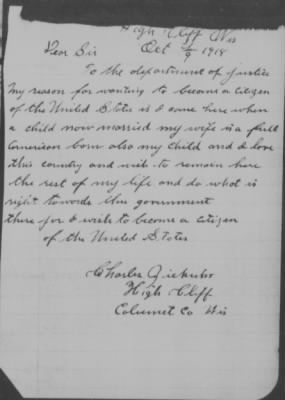 High Cliff Wis
Dear Sir Oct 7/9 1918
To the department of justice
My reason for wanting to become a citizen
of the United States is I came here when
a child now married my wife is a full
American born also my child and I love
this country and wish to remain here
the rest of my life and do what is
right towards this government
there for I wish to become a citizen
of the United States
Charles
High Cliff
Calumet Co Wis